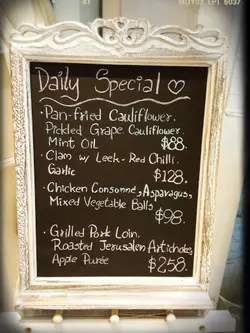 Daily Special ♡
· Pan-fried Cauliflower.
Pickled Grape Cauliflower.
Mint Oil $88.
· Clam w/ Leek- Red Chilli.
Garlic $128.
· Chicken Consommé, Asparagus,
Mixed Vegetable Balls
$98.
· Grilled Pork Loin.
Roasted Jerusalem Artichokes,
Apple Purée $258.